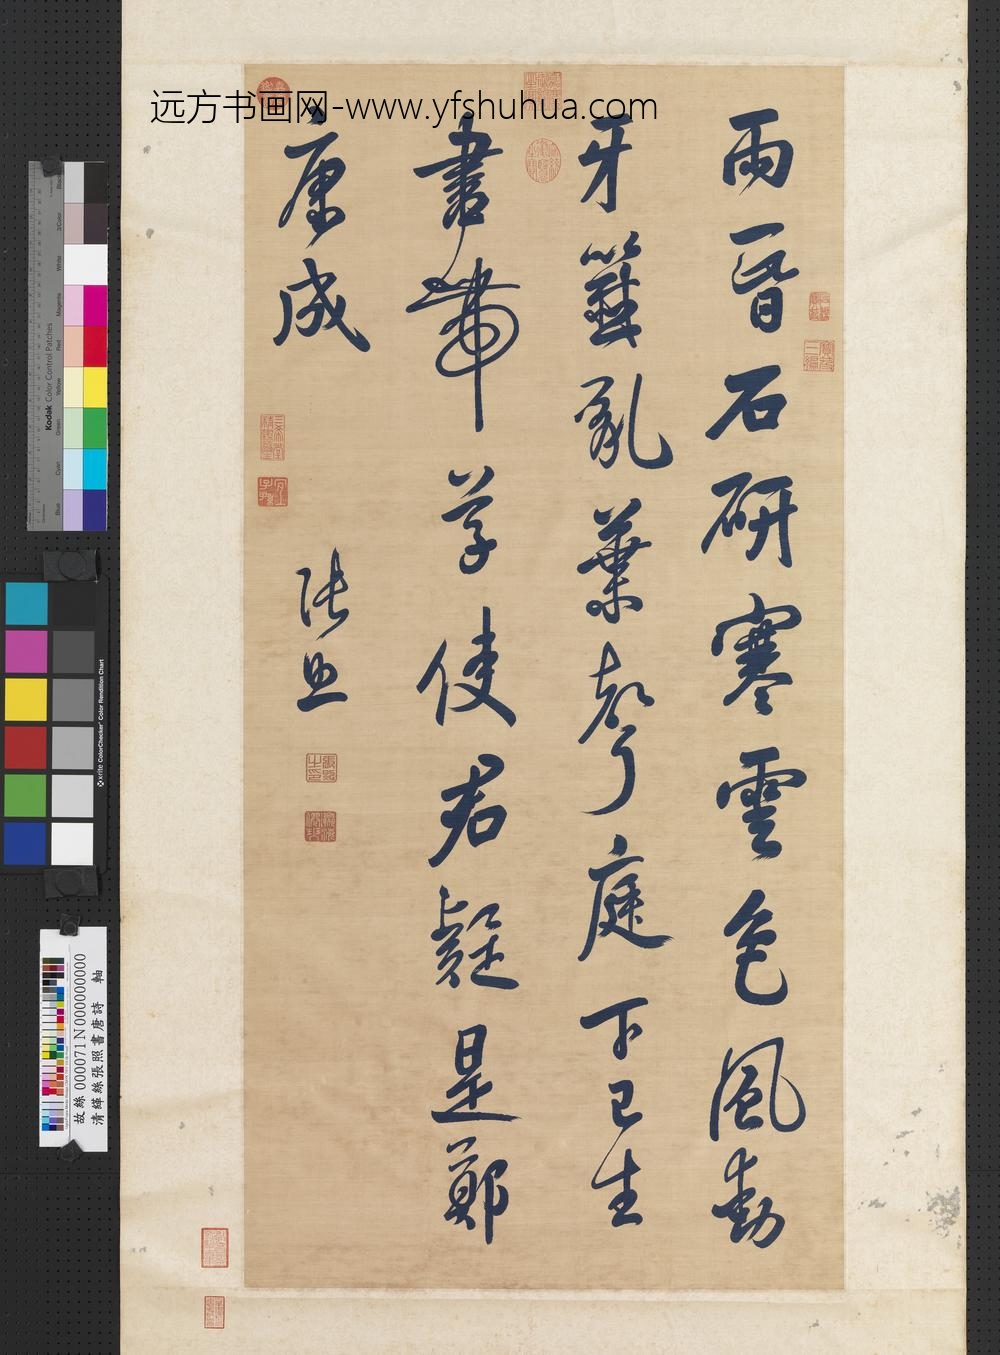 远方书画网-www.yfshuhua.com
雨昏石研寒雲色風動
牙籤亂葉聲庭下已生
書帶草使君疑是鄭
康成
張照
三希堂精鑑璽
宜子孫
張照之印
Kodak Color Control Patches
Blue
Cyan
Green
Yellow
Red
Magenta
White
3/Color
Black
x-rite ColorChecker Color Rendition Chart
故絲 000071N000000000
清緙絲張照書唐詩 軸